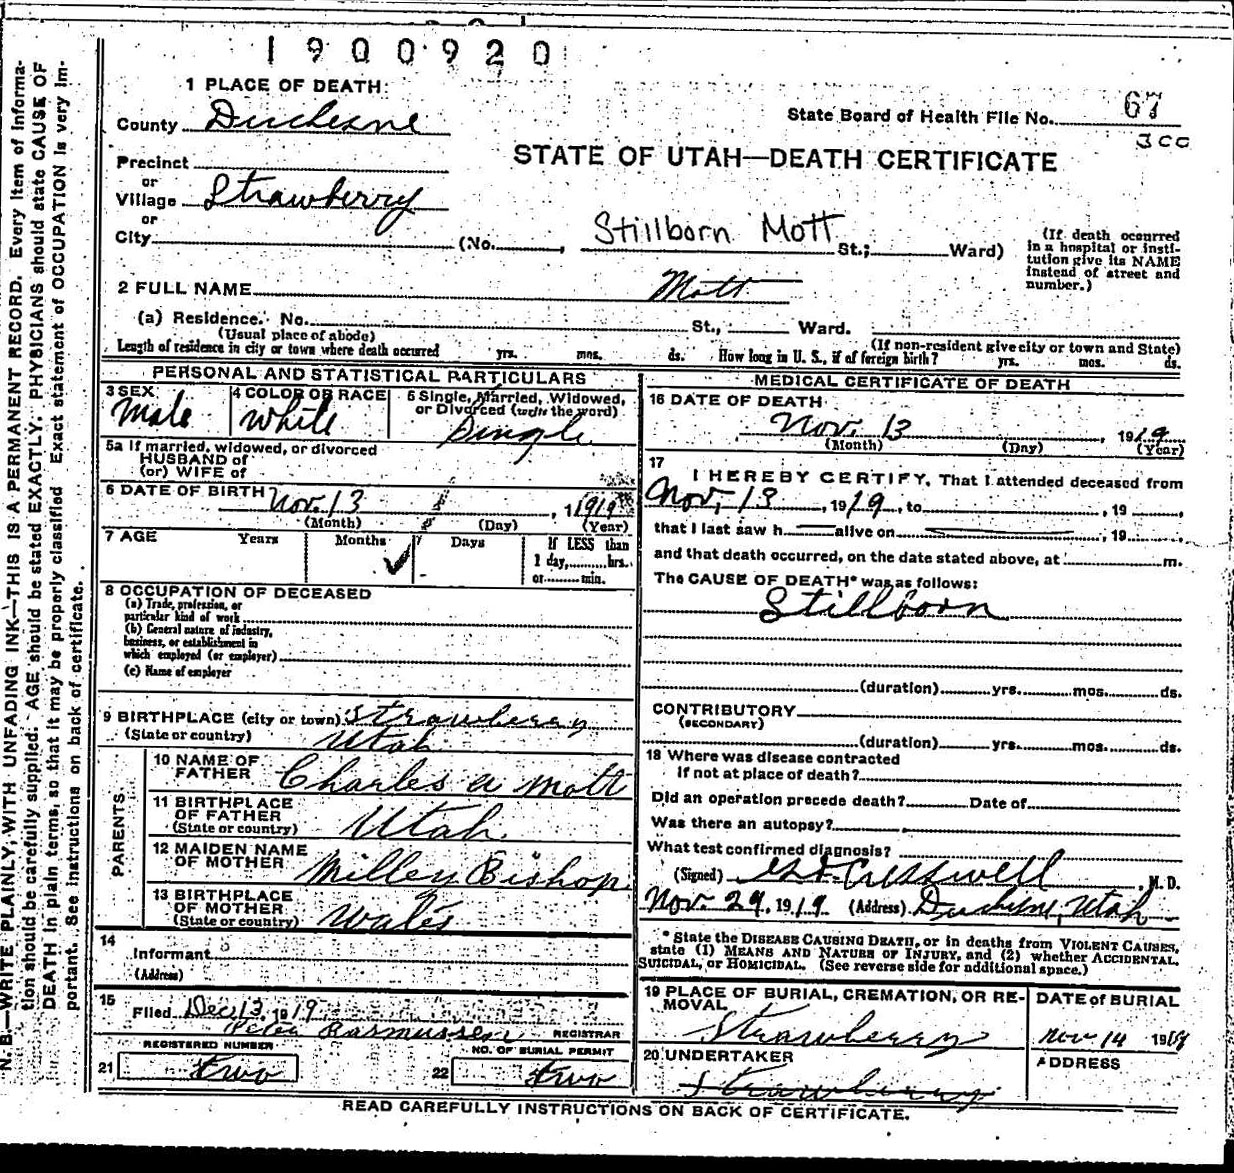 1900920
1 PLACE OF DEATH:
County Duchesne
State Board of Health File No. 67
300
Precinct
STATE OF UTAH—DEATH CERTIFICATE
or
Village Strawberry
or
City (No. , Stillborn Mott St.; Ward)
(If death ocourred
in a hospital or insti-
tution give its NAME
instead of street and
number.)
2 FULL NAME Mott
(a) Residence. No. St., Ward.
(Usual place of abode) (If non-resident give city or town and State)
Length of residence in city or town where death occurred yrs. mos. ds. How long in U. S., if of foreign birth? yrs. mos. ds.
PERSONAL AND STATISTICAL PARTICULARS
3 SEX
Male
4 COLOR OR RACE
White
5 Single, Married, Widowed,
or Divorced (write the word)
Single
5a If married, widowed, or divorced
HUSBAND of
(or) WIFE of
6 DATE OF BIRTH Nov. 13 , 1919
(Month) (Day) (Year)
7 AGE Years Months Days If LESS than
1 day, hrs.
or min.
8 OCCUPATION OF DECEASED
(a) Trade, profession, or
particular kind of work
(b) General nature of industry,
business, or establishment in
which employed (or employer)
(c) Name of employer
9 BIRTHPLACE (city or town) Strawberry
(State or country) Utah
PARENTS
10 NAME OF
FATHER Charles A Mott
11 BIRTHPLACE
OF FATHER
(State or country) Utah
12 MAIDEN NAME
OF MOTHER Milley Bishop
13 BIRTHPLACE
OF MOTHER
(State or country) Wales
14
Informant
(Address)
15
Filed Dec 13, 1919
Peter Rasmussen REGISTRAR
REGISTERED NUMBER
21 two
NO. OF BURIAL PERMIT
22 two
MEDICAL CERTIFICATE OF DEATH
16 DATE OF DEATH
Nov. 13 , 1919
(Month) (Day) (Year)
17
I HEREBY CERTIFY, That I attended deceased from
Nov. 13 , 1919, to , 19 ,
that I last saw h alive on , 19 ,
and that death occurred, on the date stated above, at m.
The CAUSE OF DEATH* was as follows:
Stillborn
(duration) yrs. mos. ds.
CONTRIBUTORY
(SECONDARY)
(duration) yrs. mos. ds.
18 Where was disease contracted
if not at place of death?
Did an operation precede death? Date of
Was there an autopsy?
What test confirmed diagnosis?
(Signed) Cresswell , M. D.
Nov. 29, 1919 (Address) Duchesne, Utah
* State the DISEASE CAUSING DEATH, or in deaths from VIOLENT CAUSES,
state (1) MEANS AND NATURE OF INJURY, and (2) whether ACCIDENTAL,
SUICIDAL, or HOMICIDAL. (See reverse side for additional space.)
19 PLACE OF BURIAL, CREMATION, OR RE-
MOVAL
Strawberry
DATE of BURIAL
Nov 14 1919
20 UNDERTAKER
Strawberry
ADDRESS
READ CAREFULLY INSTRUCTIONS ON BACK OF CERTIFICATE.
N. B.—WRITE PLAINLY, WITH UNFADING INK—THIS IS A PERMANENT RECORD. Every item of informa-
tion should be carefully supplied. AGE should be stated EXACTLY. PHYSICIANS should state CAUSE OF
DEATH in plain terms, so that it may be properly classified. Exact statement of OCCUPATION is very im-
portant. See instructions on back of certificate.